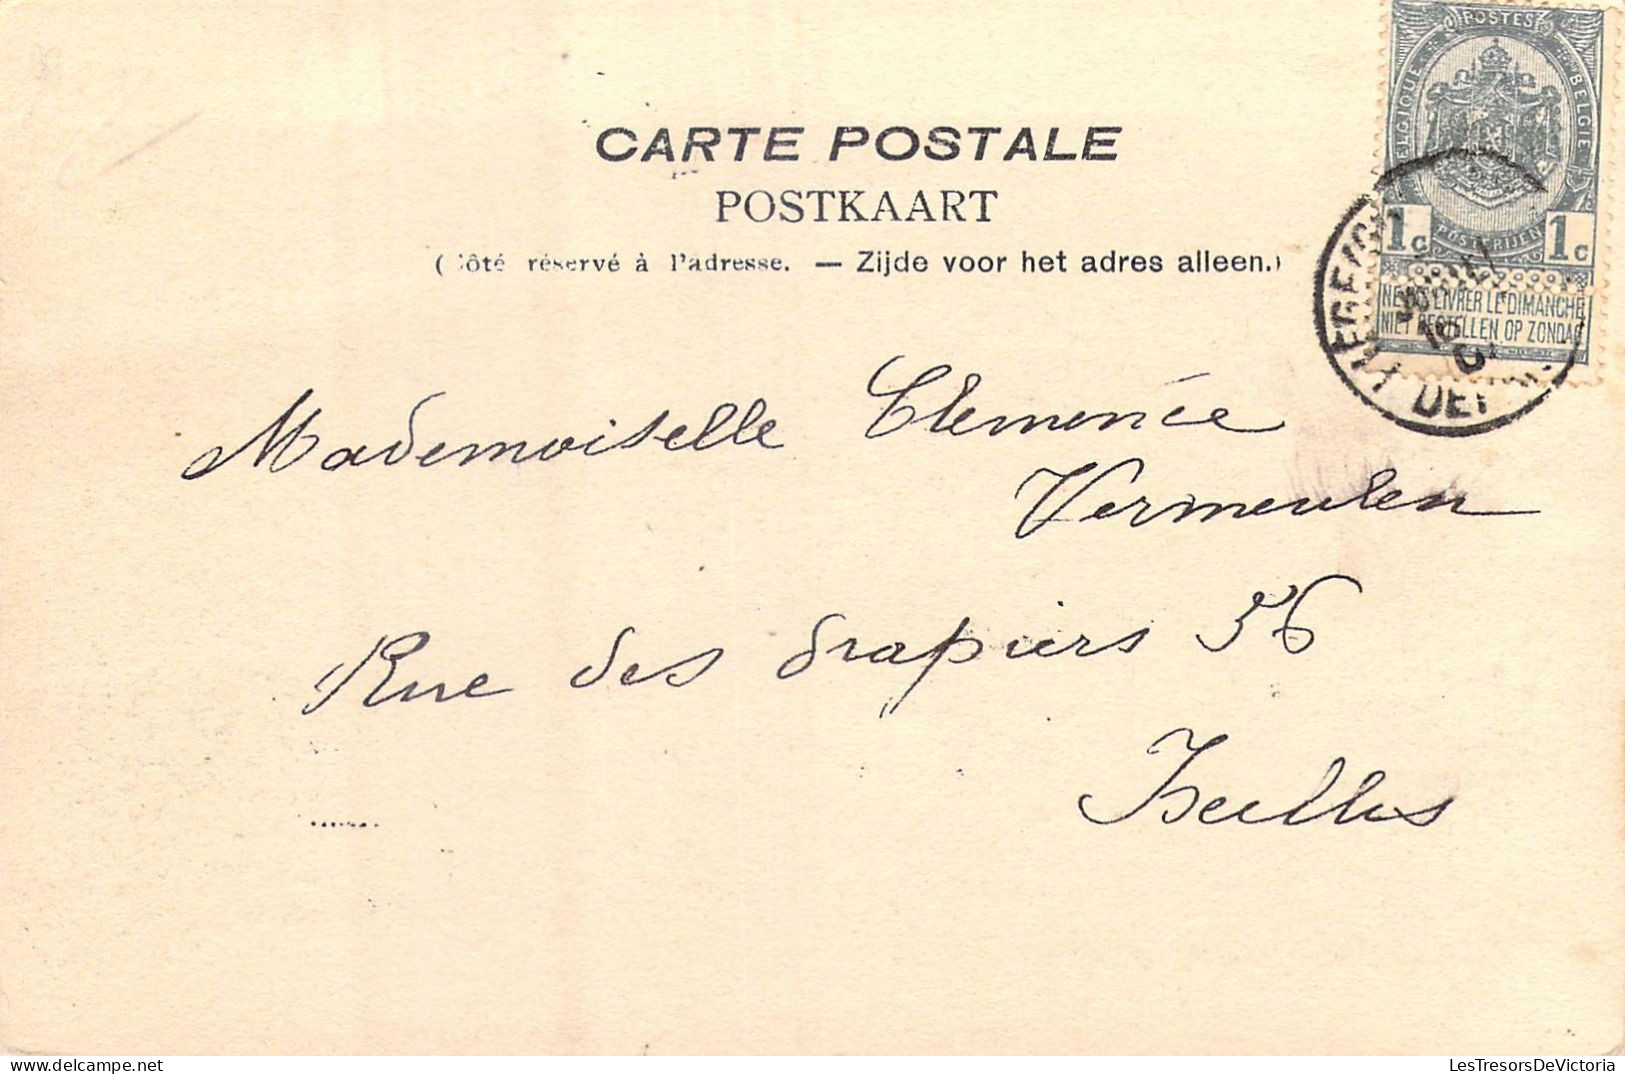 POSTES
BELGIQUE
BELGIË
CARTE POSTALE
POSTKAART
POSTERIJEN
1c 1c
(Côté réservé à l'adresse. — Zijde voor het adres alleen.)
NE PAS LIVRER LE DIMANCHE
NIET BESTELLEN OP ZONDAG
Mademoiselle Clemence
Vermeulen
Rue des drapiers 56
Ixelles
LesTresorsDeVictoria